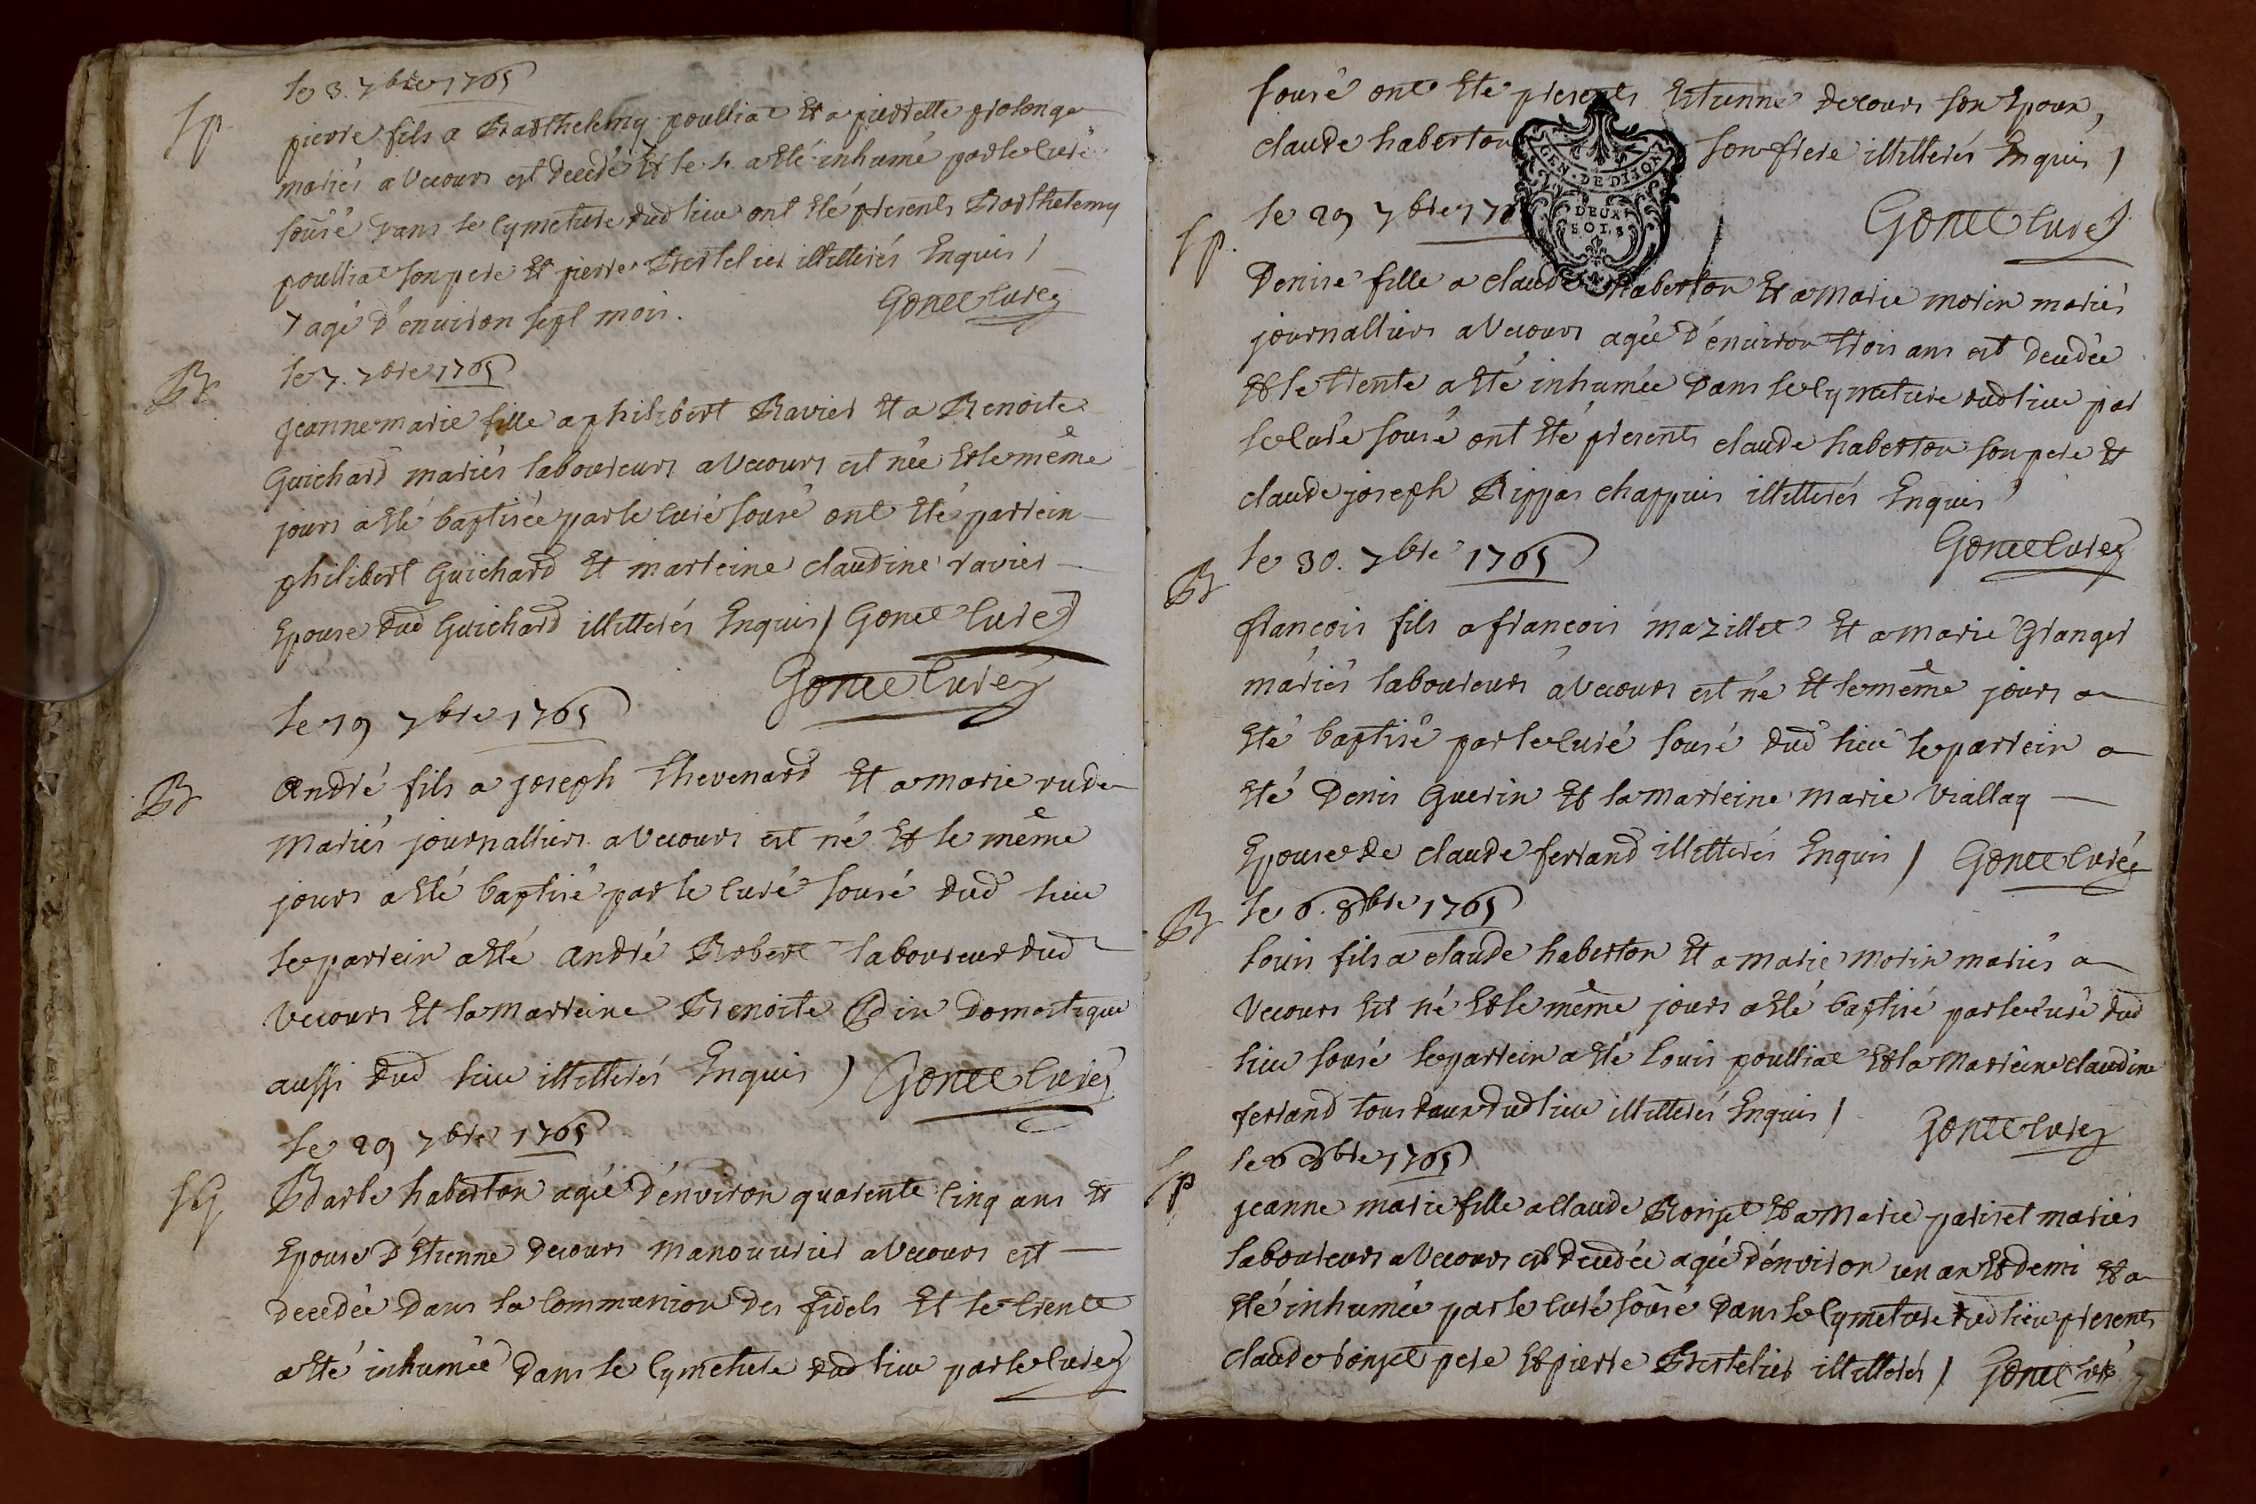 le 3. 7bre 1765
Sp.
pierre fils a Barthelemy poulliat Et a pierrette prolonge
mariés a Vecours est decedé Et le 4. a Eté inhumé par le Curé
sousé Dans le Cymetiere dud lieu ont Eté presents Barthelemy
poulliat son pere Et pierre Bertelier illitterés Enquis /
agé d'environ sept mois.
Gonet Curé
le 7. 7bre 1765
B
jeanne marie fille a philibert Ravier Et a Benoite
Guichard mariés laboureurs a Vecours est née Et le même
jours a Eté baptisée par le Curé sousé ont Eté parrein
philibert Guichard Et marreine Claudine ravier
Epouse dud Guichard illitterés Enquis / Gonet Curé
Gonet Curé
le 19 7bre 1765
B
André fils a joseph thevenard Et a marie rude
Mariés journalliers a Vecours est né Et le même
jours a Eté baptisé par le Curé sousé dud lieu
le parrein a Eté andré Robert laboureur dud
Vecours Et la Marreine Benoite Odin Domestique
aussi dud lieu illitterés Enquis / Gonet Curé
le 29 7bre 1765
SG
Barbe haberton agée d'environ quarente Cinq ans Et
Epouse d'Etienne decours Manouvrier a Vecours est
decedée Dans la Communion des fidels Et le trente
a Eté inhumée Dans le Cymetiere dud lieu par le Curé
sousé ont Eté presents Estienne decours son Epoux,
claude haberton son frere illitterés Enquis /
GEN. DE DIJON
DEUX
SOLS
Gonet Curé
le 29 7bre 17
Sp.
Denise fille a claude haberton Et a Marie morin mariés
journalliers a Vecours agée d'environ trois ans est decedée
Et le trente a Eté inhumée Dans le Cymetiere dud lieu par
le Curé sousé ont Eté presents claude haberton son pere Et
claude joseph Rippas chappuis illitterés Enquis
Gonet Curé
le 30. 7bre 1765
B
françois fils a françois mazillet Et a marie Granger
mariés laboureurs a Vecours est né Et le même jours a
Eté baptisé par le Curé sousé dud lieu le parrein a
Eté Denis Guerin Et la Marreine Marie Viallay
Epouse de claude ferrand illitterés Enquis / Gonet Curé
B
le 6. 8bre 1765
Louis fils a claude haberton Et a Marie Morin mariés a
Vecours Est né Et le même jours a Eté baptisé par le Curé dud
lieu sousé le parrein a Eté Louis poulliat Et la Marreine claudine
ferrand tous deux dud lieu illitterés Enquis /
Gonet Curé
le 6 8bre 1765
Sp
jeanne marie fille a Claude Bonjet Et a Marie pariset mariés
laboureurs a Vecours est decedée agée d'environ un an Et demi Et a
Eté inhumée par le Curé sousé Dans le Cymetiere dud lieu presents
claude bonjet pere Et pierre Bertelier illitterés / Gonet Curé